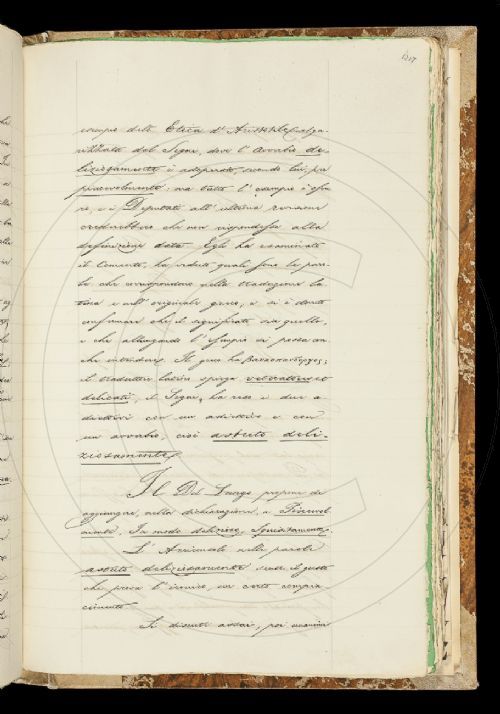 1217
esempio dell' Etica d' Aristotele volga-
rizzata dal Segni, dove l' avverbio de-
liziosamente è adoperato, secondo lui, per
piacevolmente; ma tutto l' esempio è oscu-
ro, e i Deputati all' ultima revisione
crederebbero che non rispondesse alla
definizione data. Egli ha esaminato
il Comento, ha veduto quali sono le paro-
le che corrispondono nella traduzione la-
tina e nell' originale greco, e si è dovuto
confermare che il significato sia quello,
e che allungando l' esempio si possa an-
che intendere. Il greco ha
il traduttore latino spiega veteratores et
delicati; il Segni, ha reso i due a-
diettivi con un adiettivo e con
un avverbio, cioè astuto deli-
ziosamente.
Il Del Lungo propone di
aggiungere, nella dichiarazione, a Piacevol-
mente, In modo delizioso, Squisitamente.
L' Arcinconsolo nelle parole
astuto deliziosamente vede il gusto
che prova l' ironico, un certo compia-
cimento.
Si discute assai, poi